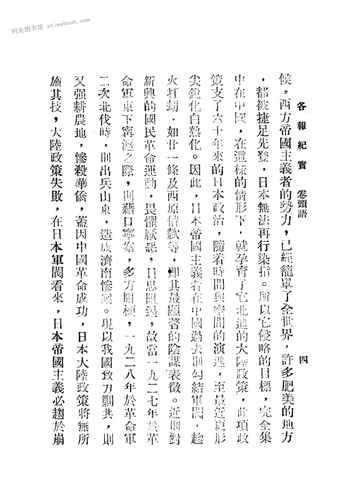 各報紀實　卷頭語
四
候，西方帝國主義者的勢力，已經籠罩了全世界，許多肥美的地方
，都被捷足先登，日本無法再行染指。所以它侵略的目標，完全集
中在中國，在這樣的情形下，就孕育了它北進的大陸政策，此項政
策支了六十年來的日本政治，隨着時間與空間的演進，至最近更形
尖銳化白熱化。因此，日本帝國主義者在中國過去則勾結軍閥，趁
火打劫，如廿一條及西原借款等，即其最顯著的陰謀表徵。近則對
新興的國民革命運動，畏懼猜忌，日思阻撓，故當一九二七年於革
命軍東下寧滬之際，則藉口寧案，多方阻梗，一九二八年於革命軍
二次北伐時，則出兵山東，造成濟南慘案。現以我國致力剿共，則
又强耕農地，慘殺華僑，蓋因中國革命成功，日本大陸政策將無所
施其技，大陸政策失敗，在日本軍閥看來，日本帝國主義必趨於崩